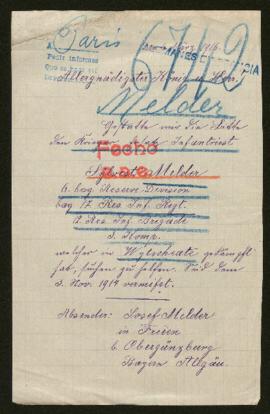 Paris
6719
Pedir informes
Allergnädigster König u. Herr.
Melder
Gestatte mir die Bitte
den Krieger Infanterist
Fecho
Sylvest Melder
6. bay. Reserve-Division
bay 17. Res. Inf. Regt.
12. Res. Inf. Brigade
3. Komp.
welcher in Wytschaete gekämpft
hat, suchen zu helfen. Seit dem
3. Nov. 1914 vermißt.
Absender: Josef Melder
in Freien
b. Obergünzburg
Bayern Allgäu.